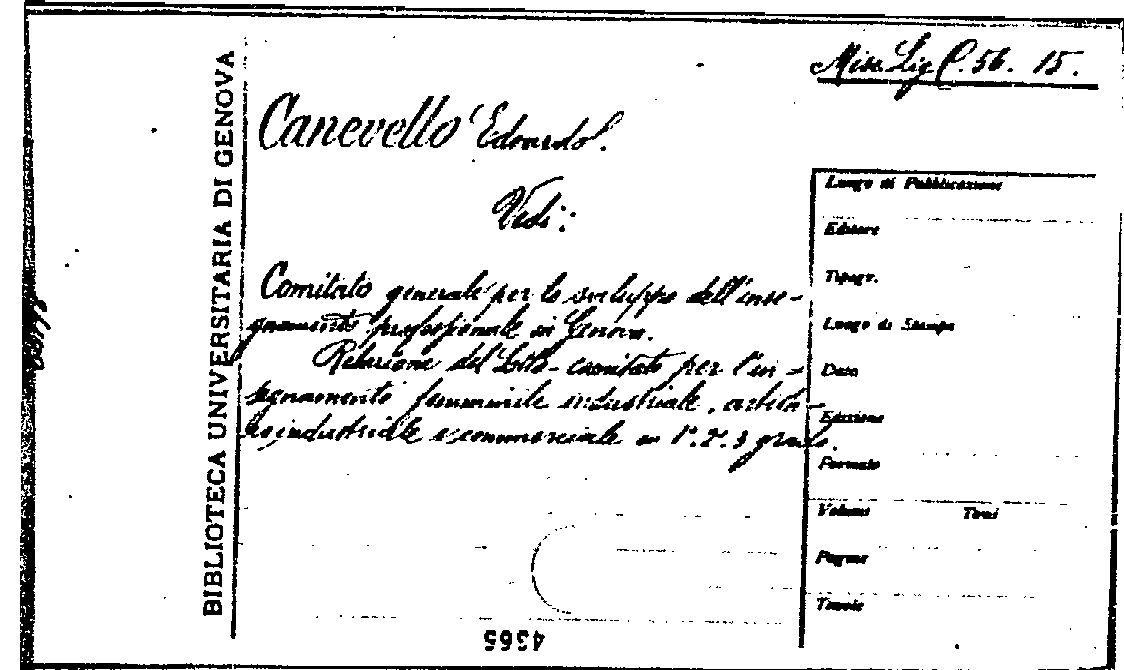 Misc. Lig. C. 56. 15.
BIBLIOTECA UNIVERSITARIA DI GENOVA
Canevello Edoardo.
Vedi:
Comitato generale per lo sviluppo dell'inse-
gnamento professionale in Genova.
Relazione del Sotto-comitato per l'in-
segnamento femminile industriale, artisti-
co industriale e commerciale in 1°. 2°. 3 grado.
Luogo di Pubblicazione
Editore
Tipogr.
Luogo di Stampa
Data
Edizione
Formato
Volumi Tomi
Pagine
Tavole
4365